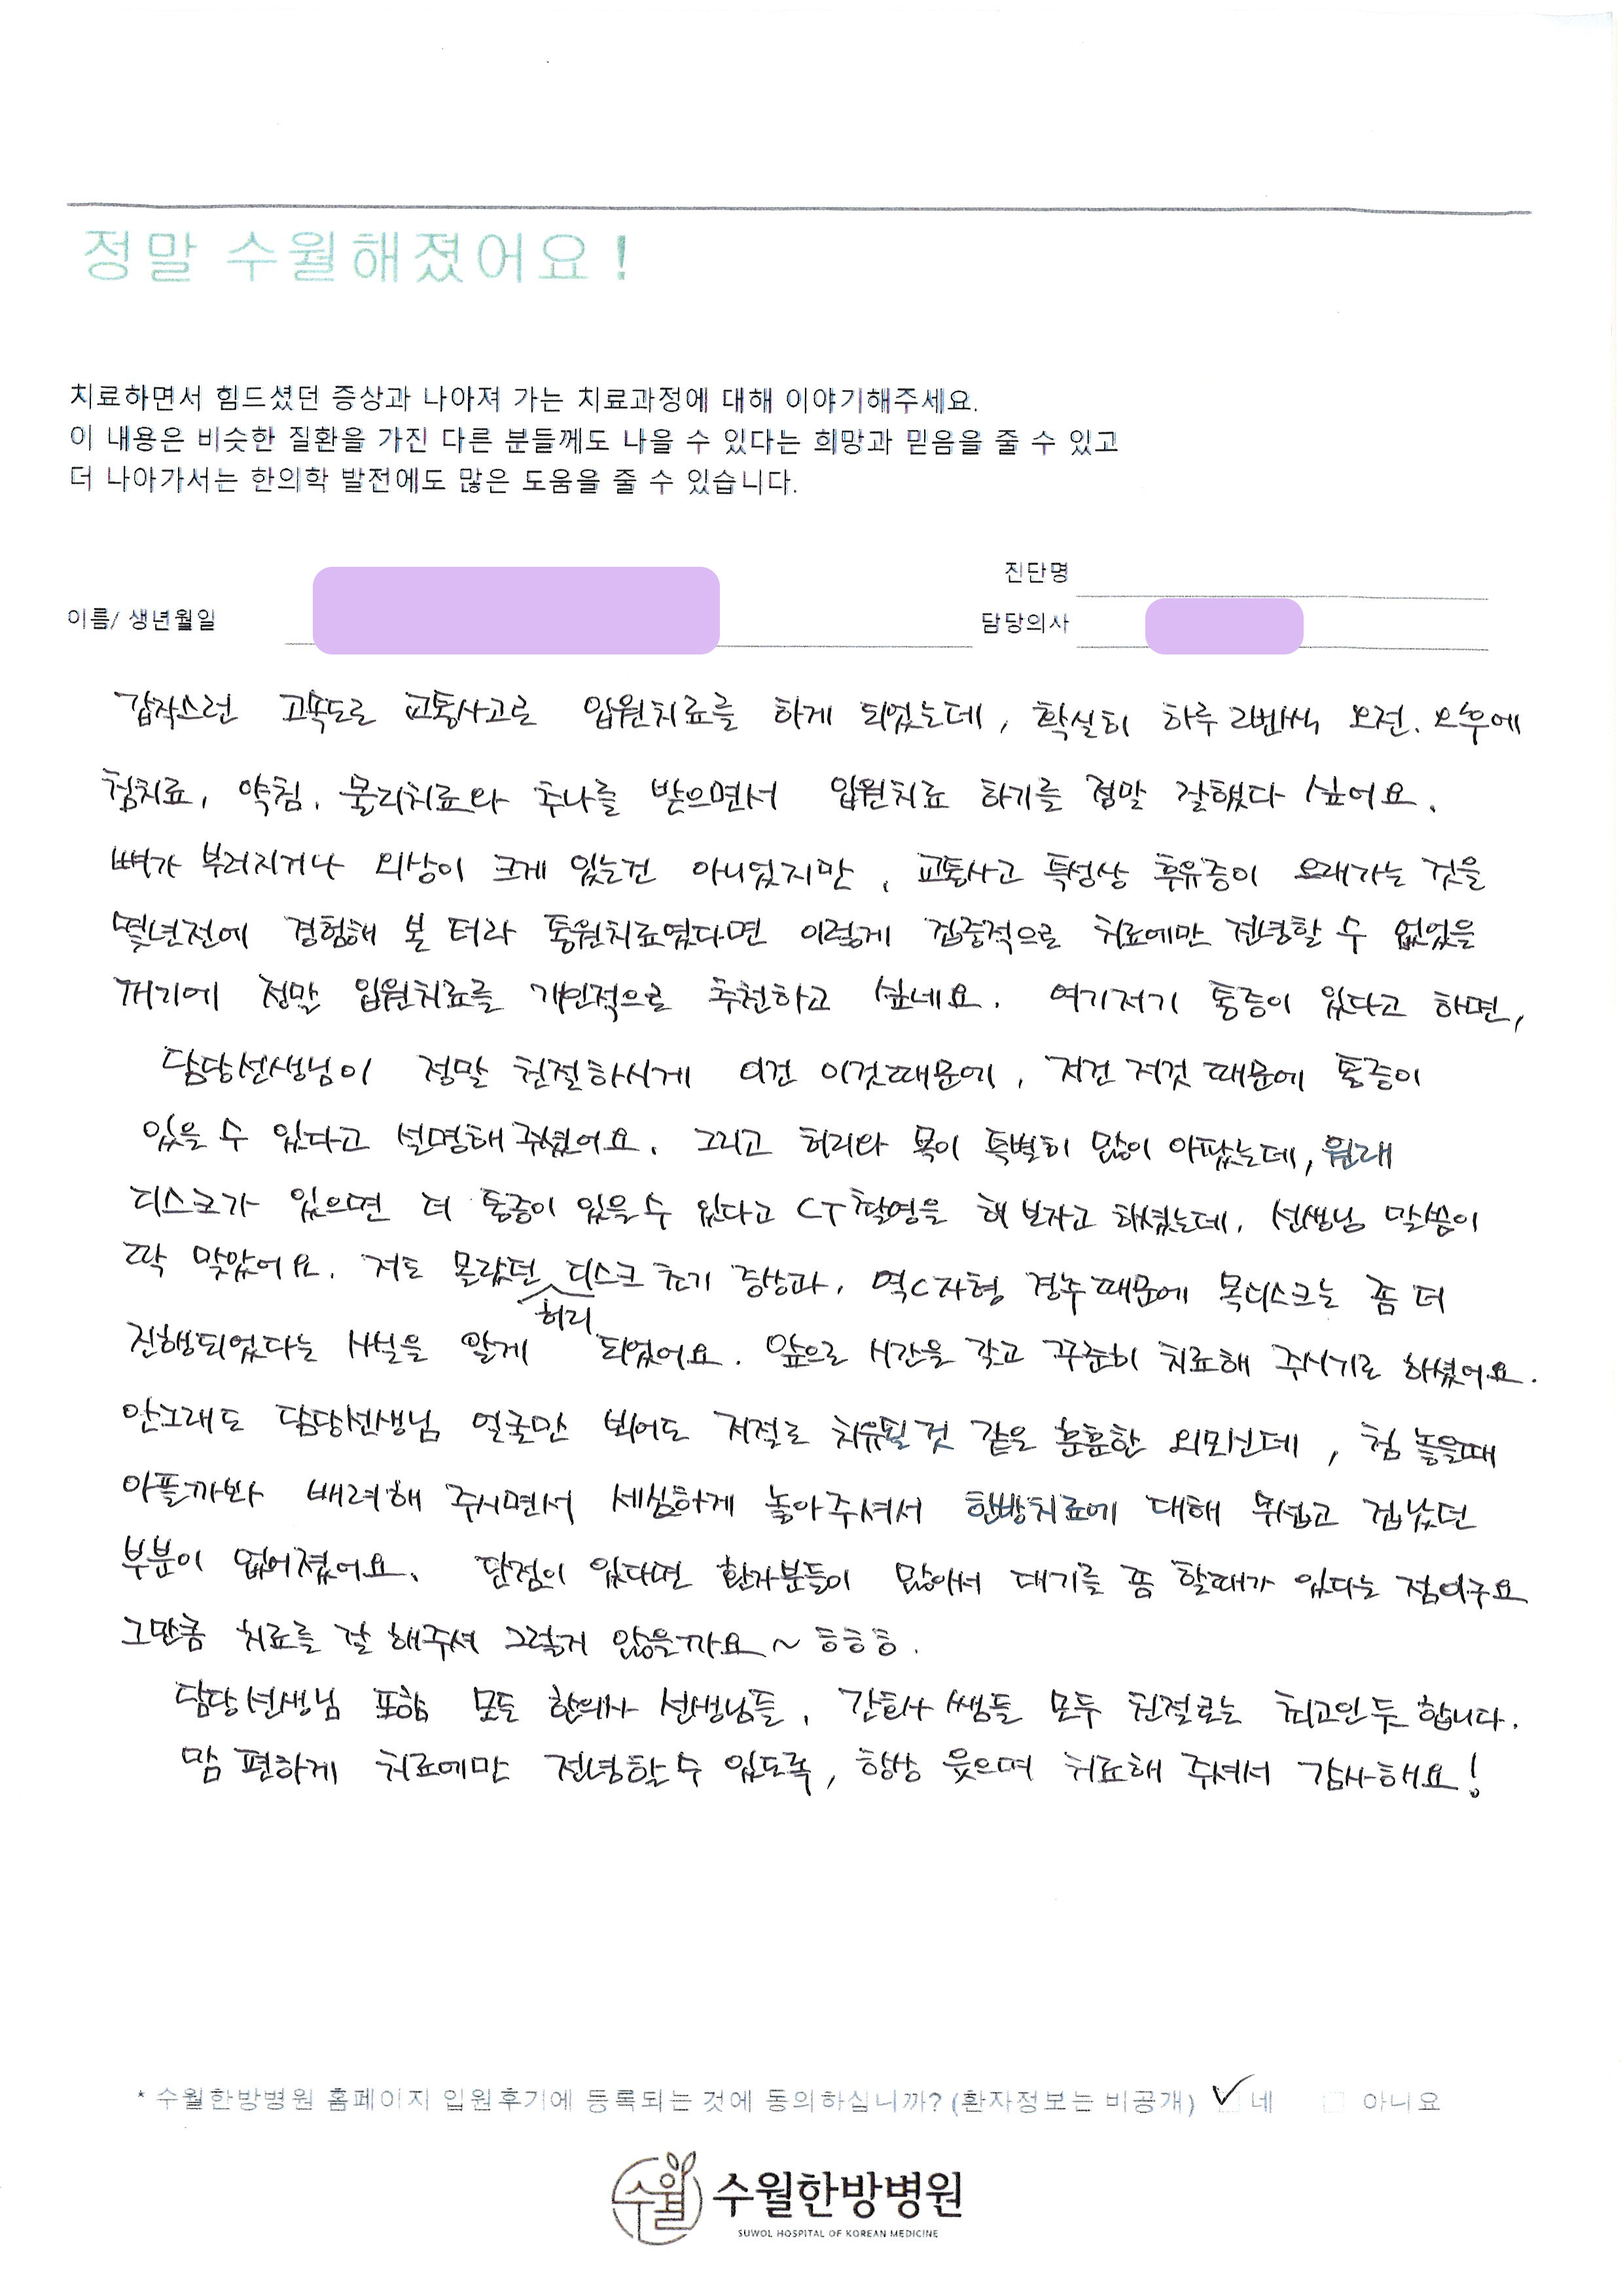 정말 수월해졌어요!
치료하면서 힘드셨던 증상과 나아져 가는 치료과정에 대해 이야기해주세요.
이 내용은 비슷한 질환을 가진 다른 분들께도 나을 수 있다는 희망과 믿음을 줄 수 있고
더 나아가서는 한의학 발전에도 많은 도움을 줄 수 있습니다.
진단명
이름/ 생년월일 담당의사
갑작스런 고속도로 교통사고로 입원치료를 하게 되었는데, 확실히 하루 2번씩 오전. 오후에
침치료, 약침. 물리치료와 추나를 받으면서 입원치료 하기를 정말 잘했다 싶어요.
뼈가 부러지거나 외상이 크게 있는건 아니었지만, 교통사고 특성상 후유증이 오래가는 것을
몇년전에 경험해 본 터라 통원치료였다면 이렇게 집중적으로 치료에만 전념할 수 없었을
꺼기에 정말 입원치료를 개인적으로 추천하고 싶네요. 여기저기 통증이 있다고 하면,
담당선생님이 정말 친절하시게 이건 이것때문에, 저건 저것 때문에 통증이
있을 수 있다고 설명해 주셨어요. 그리고 허리와 목이 특별히 많이 아팠는데, 원래
디스크가 있으면 더 통증이 있을 수 있다고 CT촬영을 해 보자고 하셨는데, 선생님 말씀이
딱 맞았어요. 저도 몰랐던 허리 디스크 초기 증상과, 역C자형 경추 때문에 목디스크는 좀 더
진행되었다는 사실을 알게 되었어요. 앞으로 시간을 갖고 꾸준히 치료해 주시기로 하셨어요.
안그래도 담당선생님 얼굴만 뵈어도 저절로 치유될것 같은 훈훈한 외모신데, 침 놓을때
아플까봐 배려해 주시면서 세심하게 놓아주셔서 한방치료에 대해 무섭고 겁났던
부분이 없어졌어요. 단점이 있다면 환자분들이 많아서 대기를 좀 할때가 있다는 점이구요
그만큼 치료를 잘 해주셔 그렇지 않을까요~ ㅎㅎㅎ.
담당선생님 포함 모든 한의사 선생님들, 간호사 쌤들 모두 친절로는 최고인듯 합니다.
맘 편하게 치료에만 전념할 수 있도록, 항상 웃으며 치료해 주셔서 감사해요!
* 수월한방병원 홈페이지 입원후기에 등록되는 것에 동의하십니까? (환자정보는 비공개) ✓ 네 □ 아니요
수월 수월한방병원
SUWOL HOSPITAL OF KOREAN MEDICINE